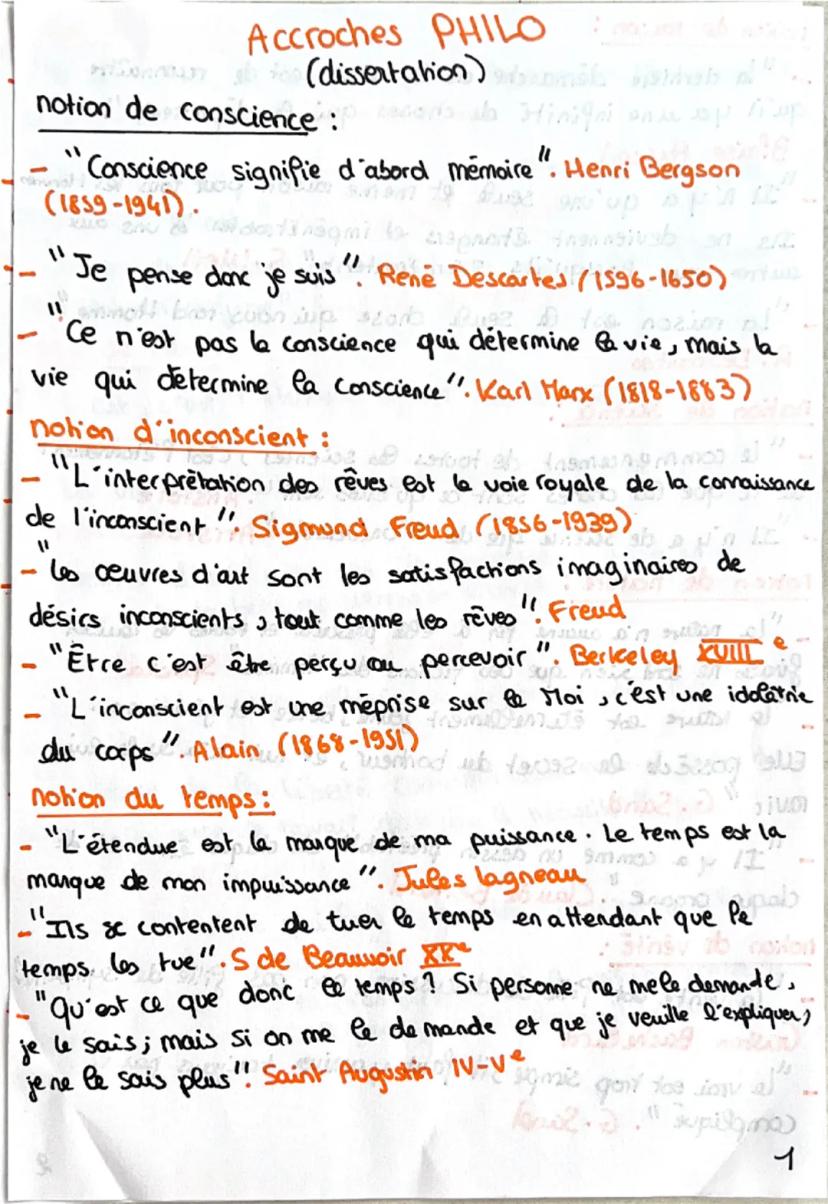 Accroches PHILO
(dissertation)
notion de conscience :
- "Conscience signifie d'abord mémoire". Henri Bergson
(1859-1941).
- "Je pense donc je suis". René Descartes (1596-1650)
- "Ce n'est pas la conscience qui détermine la vie, mais la
vie qui détermine la conscience". Karl Marx (1818-1883)
notion d'inconscient :
- "L'interprétation des rêves est la voie royale de la connaissance
de l'inconscient". Sigmund Freud (1856-1939)
- "Les œuvres d'art sont les satisfactions imaginaires de
désirs inconscients, tout comme les rêves". Freud
- "Être c'est être perçu ou percevoir". Berkeley XVIIIe
- "L'inconscient est une méprise sur le Moi, c'est une idolâtrie
du corps". Alain (1868-1951)
notion du temps :
- "L'étendue est la marque de ma puissance. Le temps est la
marque de mon impuissance". Jules Lagneau
- "Ils se contentent de tuer le temps en attendant que le
temps les tue". S de Beauvoir XXe
- "Qu'est ce que donc le temps ? Si personne ne me le demande,
je le sais ; mais si on me le demande et que je veuille l'expliquer,
je ne le sais plus". Saint Augustin IV-Ve
1